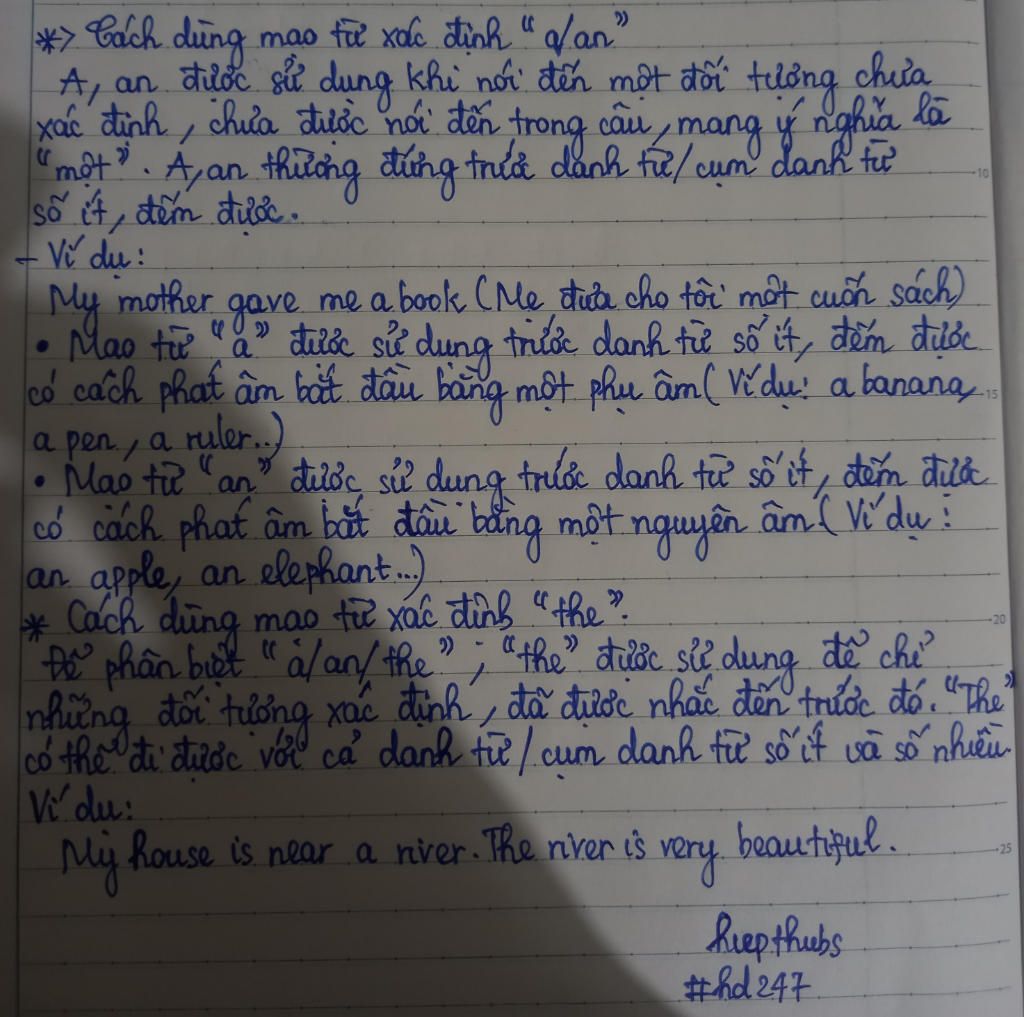 *> Cách dùng mạo từ xác định "a/an"
A, an được sử dụng khi nói đến một đối tượng chưa
xác định, chưa được nói đến trong câu, mang ý nghĩa là
"một". A, an thường đứng trước danh từ/cụm danh từ
số ít, đếm được.
- Ví dụ:
My mother gave me a book (Mẹ đưa cho tôi một cuốn sách)
• Mạo từ "a" được sử dụng trước danh từ số ít, đếm được
có cách phát âm bắt đầu bằng một phụ âm (Ví dụ: a banana,
a pen, a ruler...)
• Mạo từ "an" được sử dụng trước danh từ số ít, đếm được
có cách phát âm bắt đầu bằng một nguyên âm (Ví dụ:
an apple, an elephant...)
* Cách dùng mạo từ xác định "the".
Để phân biệt "a/an/the"; "the" được sử dụng để chỉ
những đối tượng xác định, đã được nhắc đến trước đó. "The"
có thể đi được với cả danh từ/cụm danh từ số ít và số nhiều
Ví dụ:
My house is near a river. The river is very beautiful.
hiepthubs
#hd247
10
15
20
25